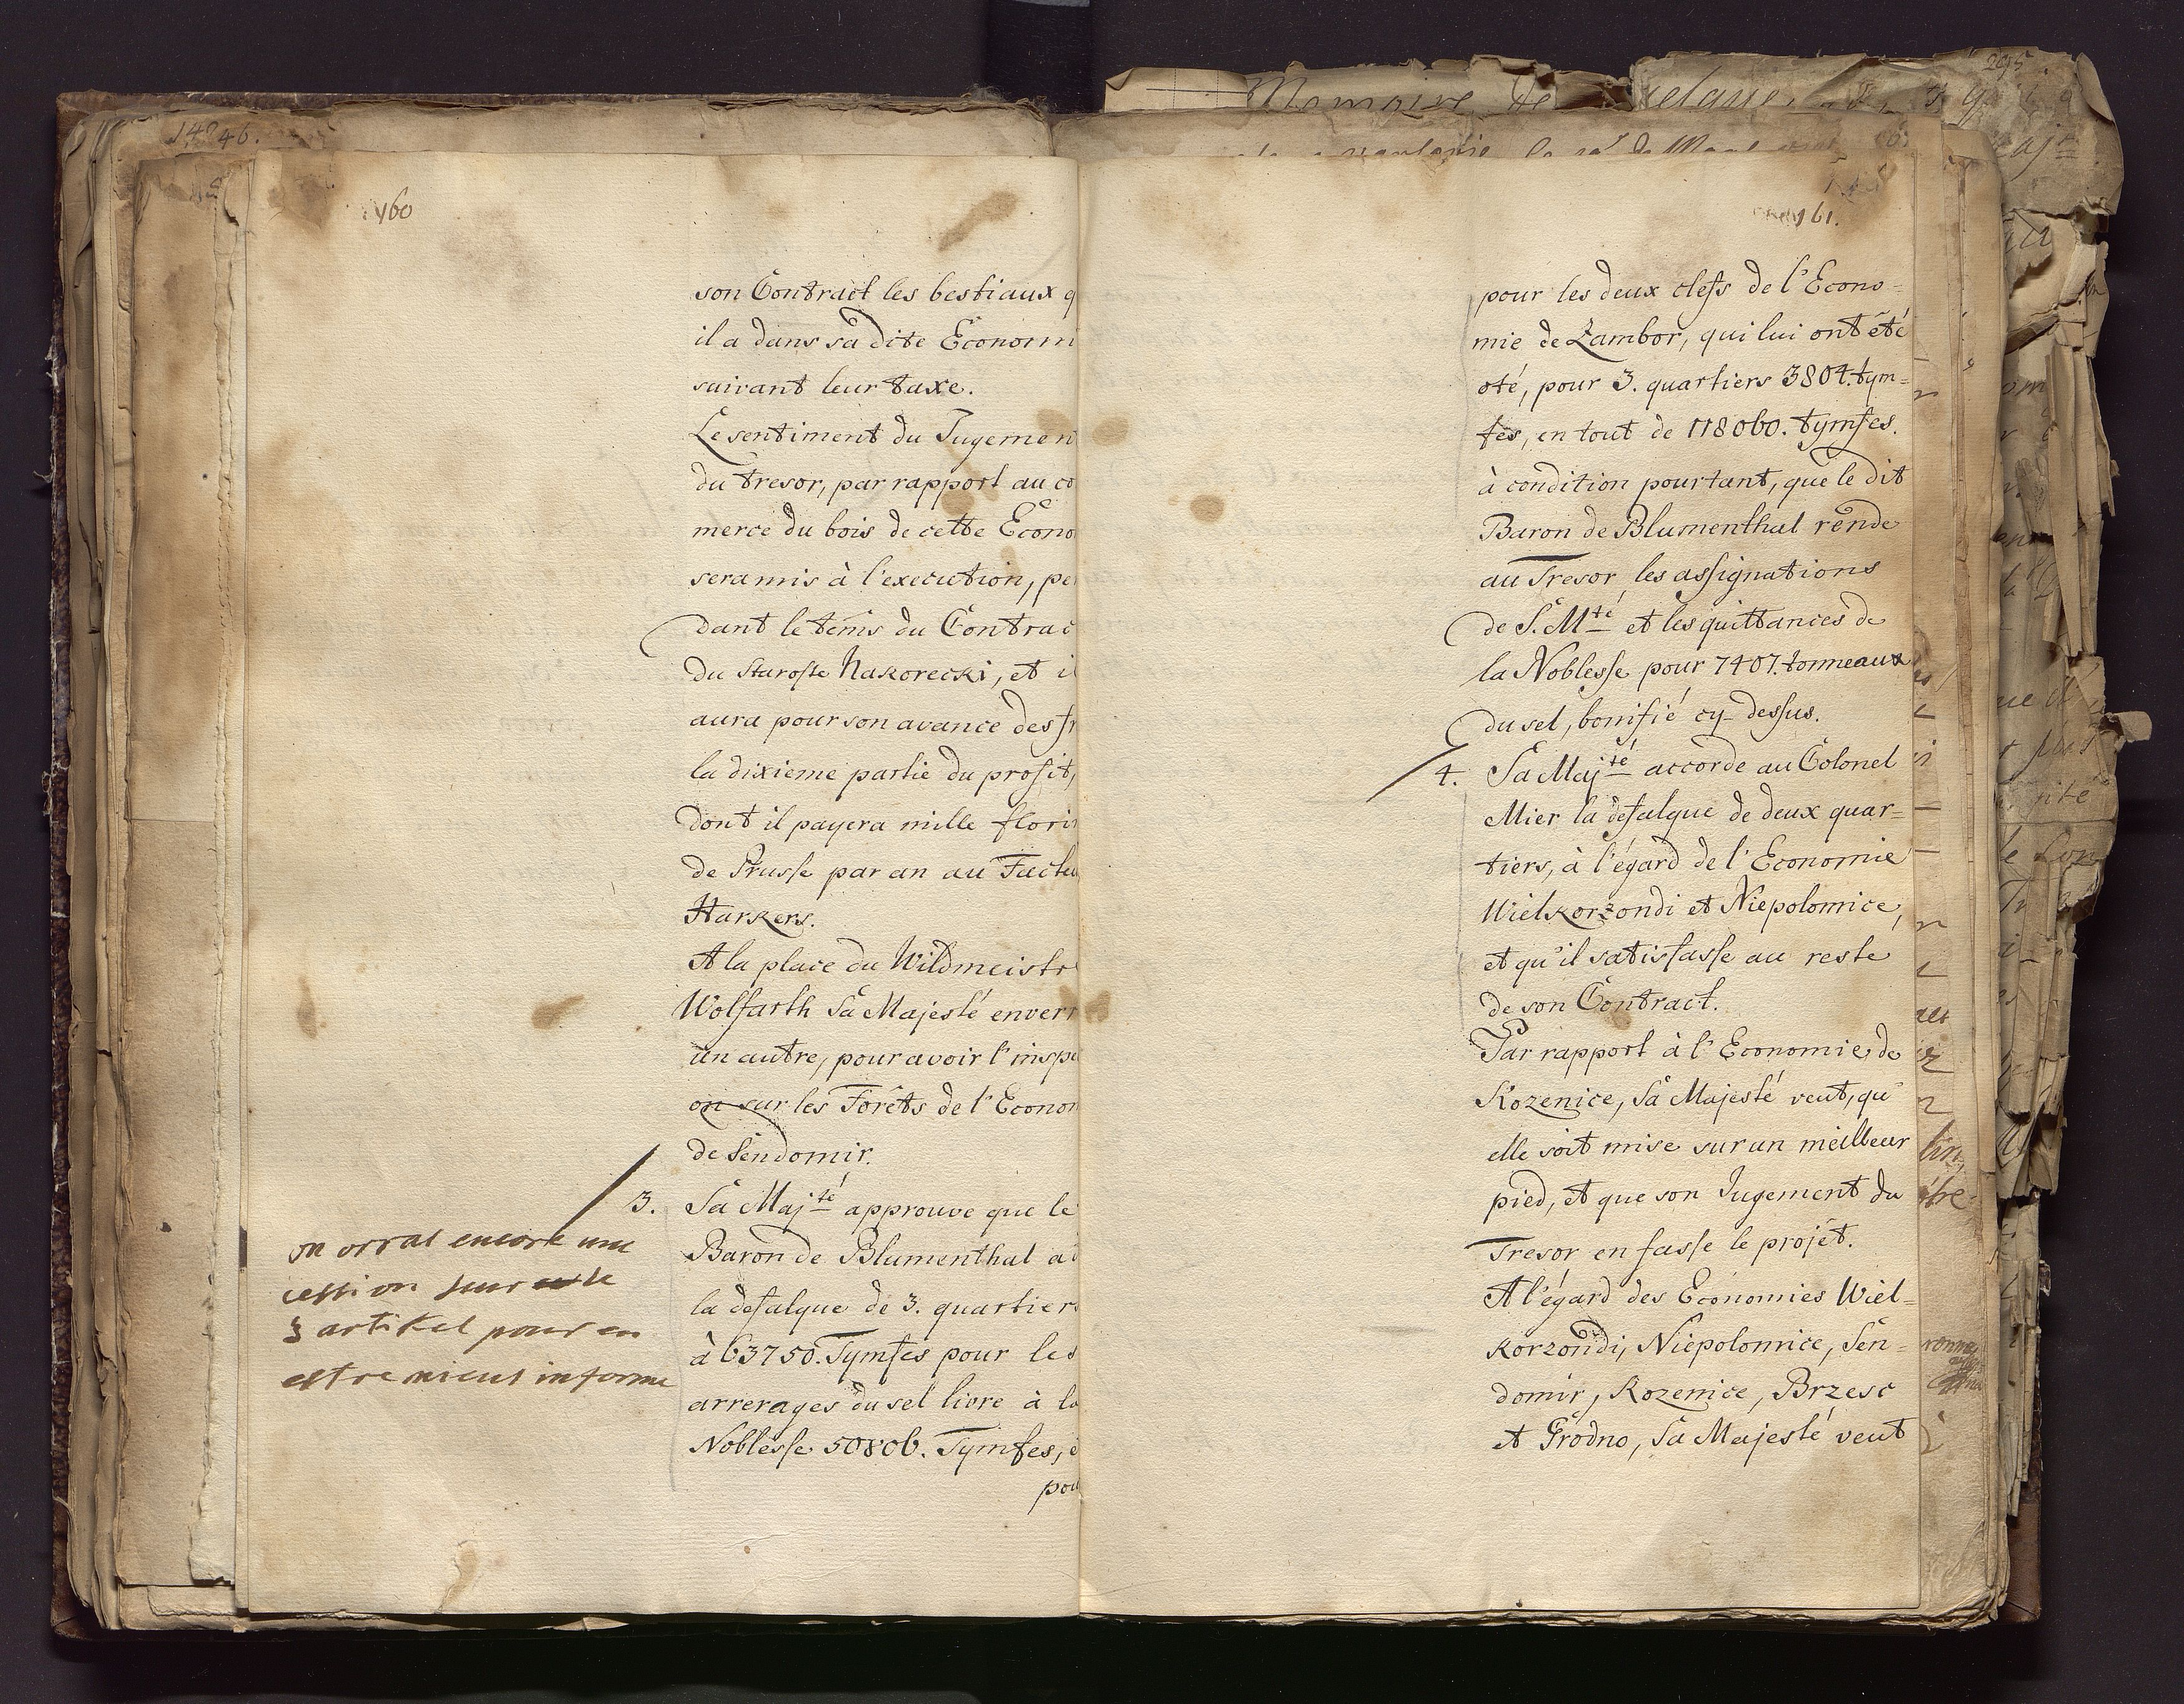 160
son Contract les bestiaux q
il a dans sa dite Economi
suivant leur taxe.
Le sentiment du Jugemen
du tresor, par rapport au co
merce du bois de cette Econo
sera mis à l'execution, pe
dant le tems du Contrac
du Staroste Nakorecki, et il
aura pour son avance des fr
la dixieme partie du profit,
dont il payera mille flori
de Prusse par an au Facteu
Harkers.
A la place du Wildmeistre
Wolfarth Sa Majesté enverr
un autre, pour avoir l'inspe
on sur les Forêts de l'Econom
de Sendomir.
3. Sa Maj.té approuve que le
Baron de Blumenthal a
la defalque de 3. quartiers
à 63750. Tymfes pour les
arrerages du sel livre à la
Noblesse 50806. Tymfes, e
pou
on orrat encore une
cession sur le
3 artikel pour en
estre mieus informe
161.
pour les deux clefs de l'Econo=
mie de Zambor, qui lui ont été
oté, pour 3. quartiers 3804. tym=
fes, en tout de 118060. tymfes.
à condition pourtant, que le dit
Baron de Blumenthal rende
au Tresor les assignations
de S. M.té et les quittances de
la Noblesse pour 7407. tonneaux
du sel, bonifié cy-dessus.
4. Sa Maj.té accorde au Colonel
Mier la defalque de deux quar=
tiers, à l'égard de l'Economie
Wielkorzondi et Niepolomice,
et qu'il satisfasse au reste
de son Contract.
Par rapport à l'Economie de
Kozenice, Sa Majesté veut, qu'
elle soit mise sur un meilleur
pied, et que son Jugement du
Tresor en fasse le projét.
A l'égard des Economies Wiel=
korzondi, Niepolomice, Sen=
domir, Kozenice, Brzesc
et Grodno, Sa Majesté veut